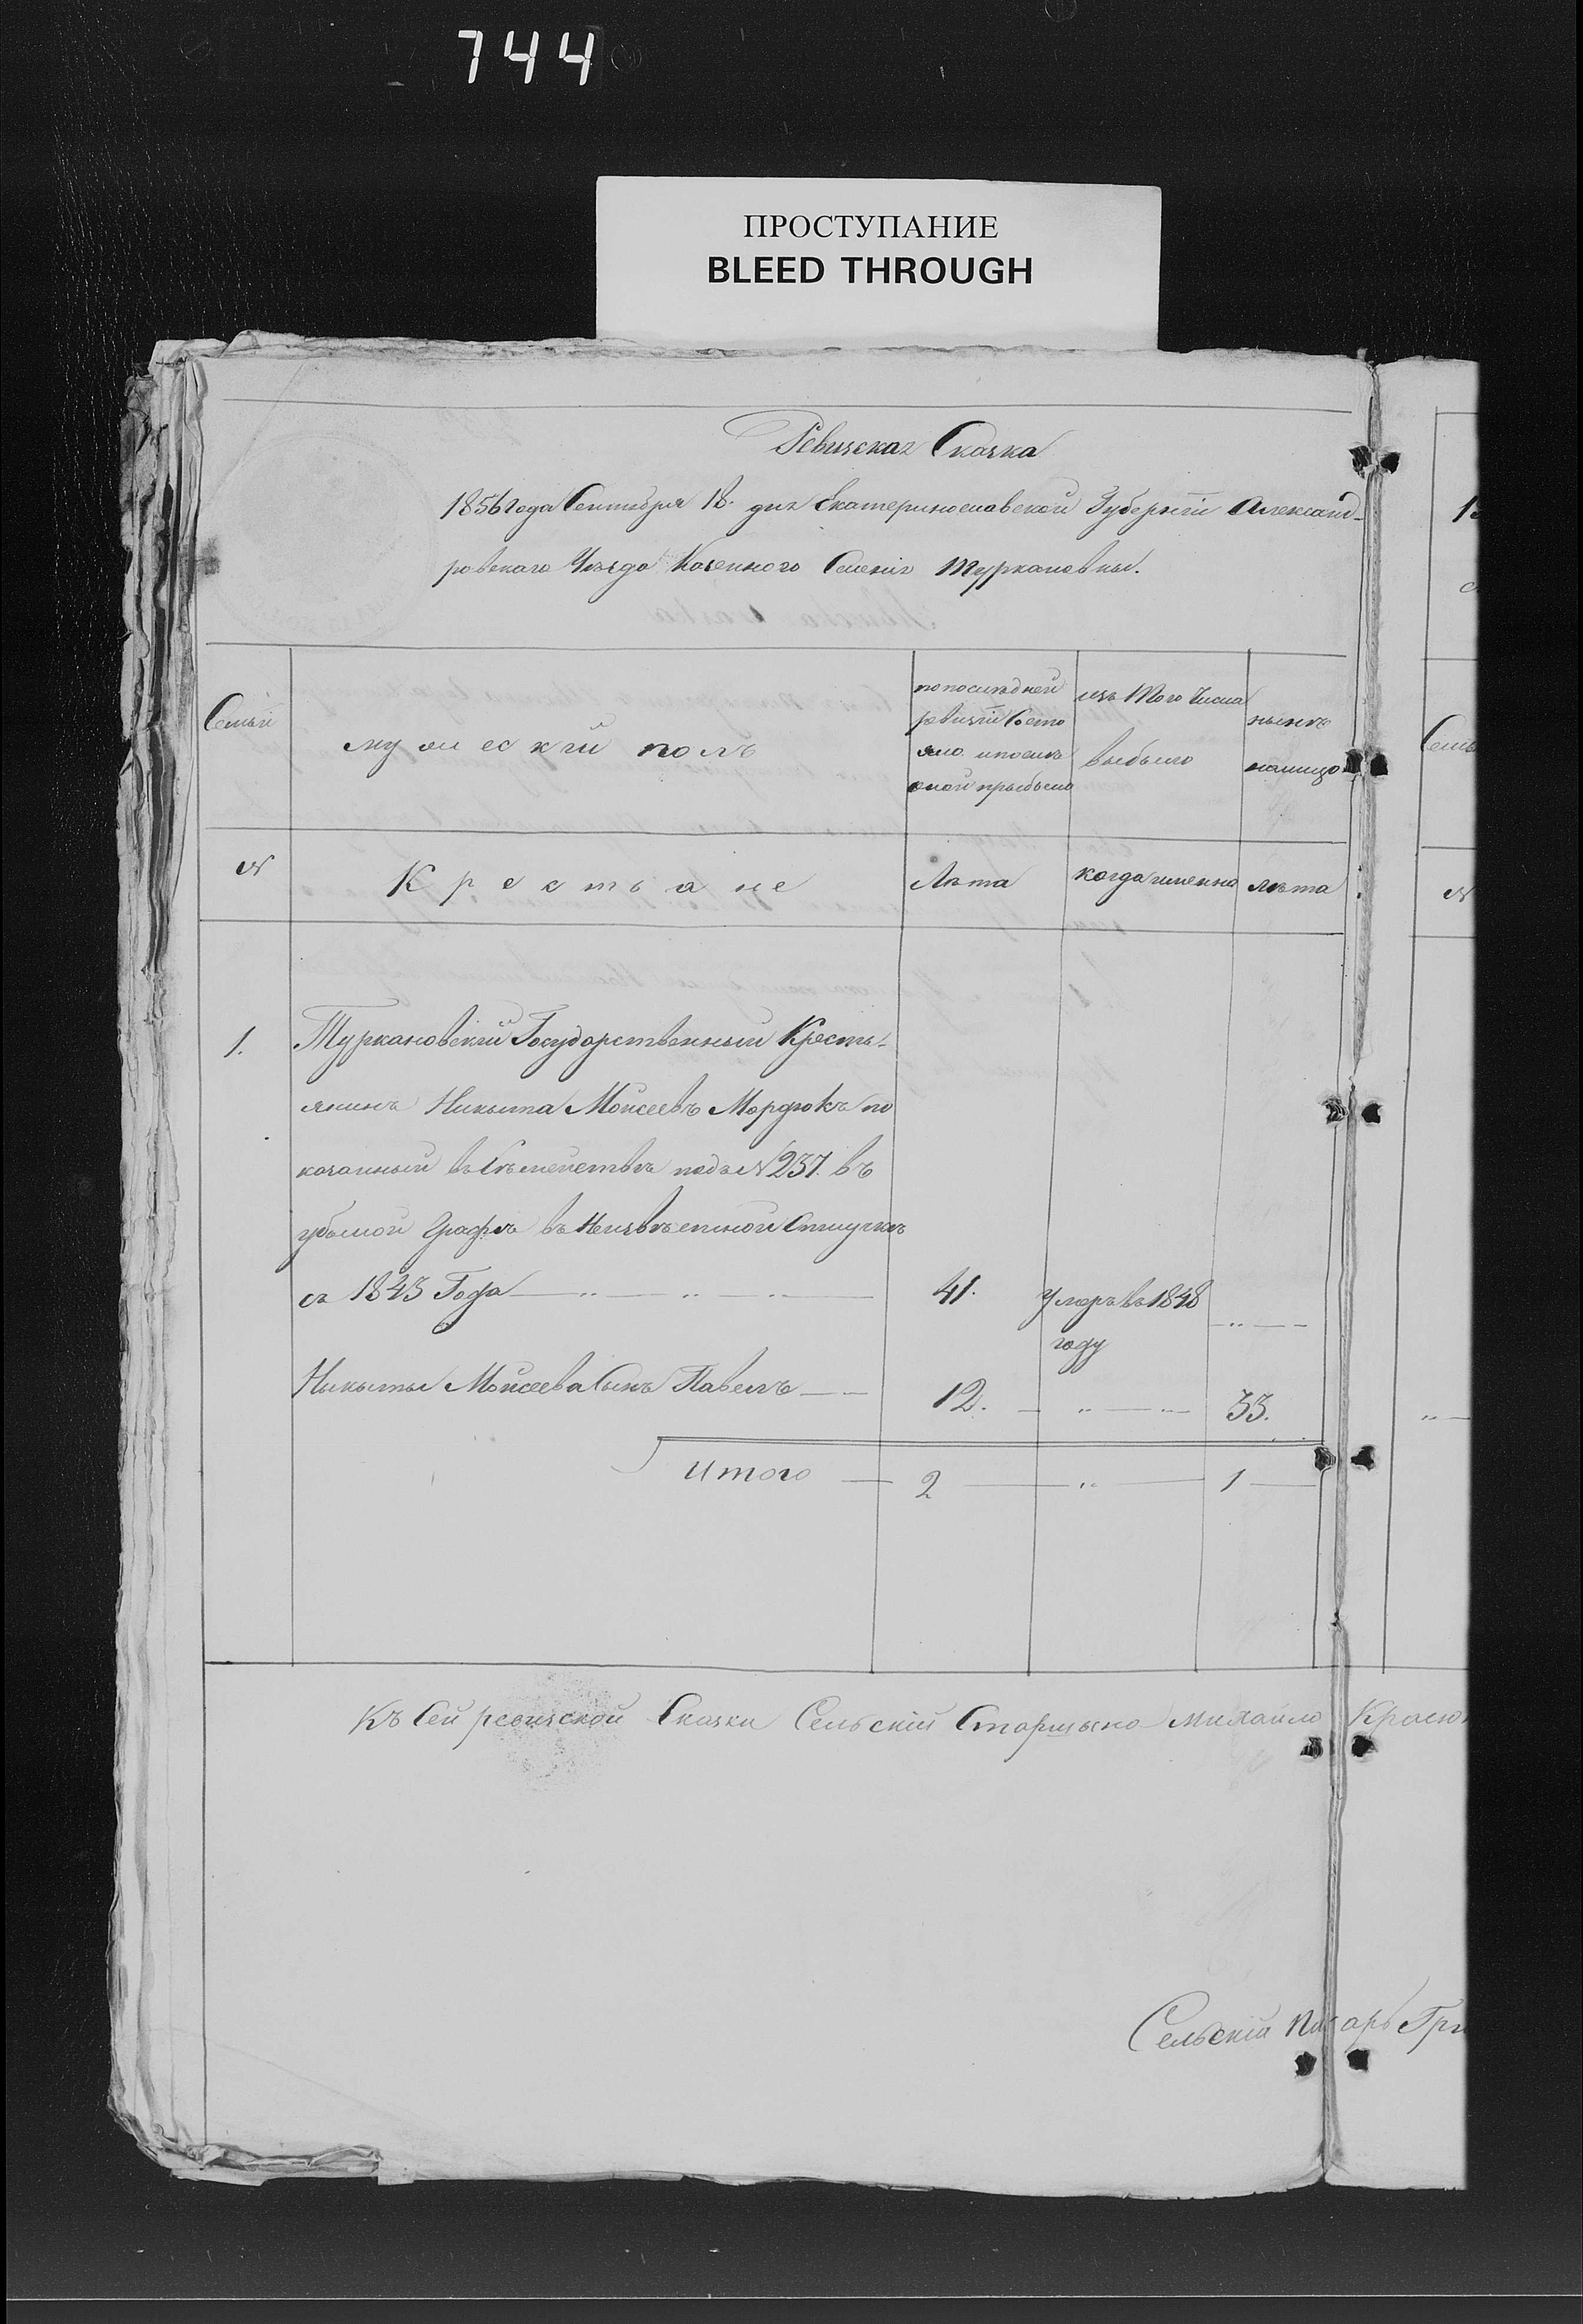 744
ПРОСТУПАНИЕ
BLEED THROUGH
Ревизская Сказка
1856 Года Сентября 18. дня Екатеринославской Губернїи Александ-
ровскаго Уѣзда Казенного Селенія Туркановки.
Семьи
мужескїй полъ
попослѣдней
ревизїи Состо
яло ипослѣ
оной прыбыло
изъ Того Числа
выбыло
нынѣ
налицо
Семь
№
Крестьане
Лѣта
когда именно
лѣта
№
1.
Туркановскїй Государственный Кресть-
янинъ Никыта Мойсеевъ Мордюкъ по
казанный въ Съмействѣ подъ № 237. въ
убылой Графѣ въ Неизвѣстной Отлучкѣ
съ 1843 Года — „ — „ — „ —
41.
Умеръ въ 1848
году
— „ —
Ныкыты Мойсеева Сынъ Павелъ — —
12. — „ — „ — 33.
Итого — 2 — „ — 1 —
Къ Сей ревизской Сказки Сельскій Старшына Михайло
Сельскій Писарь Гри